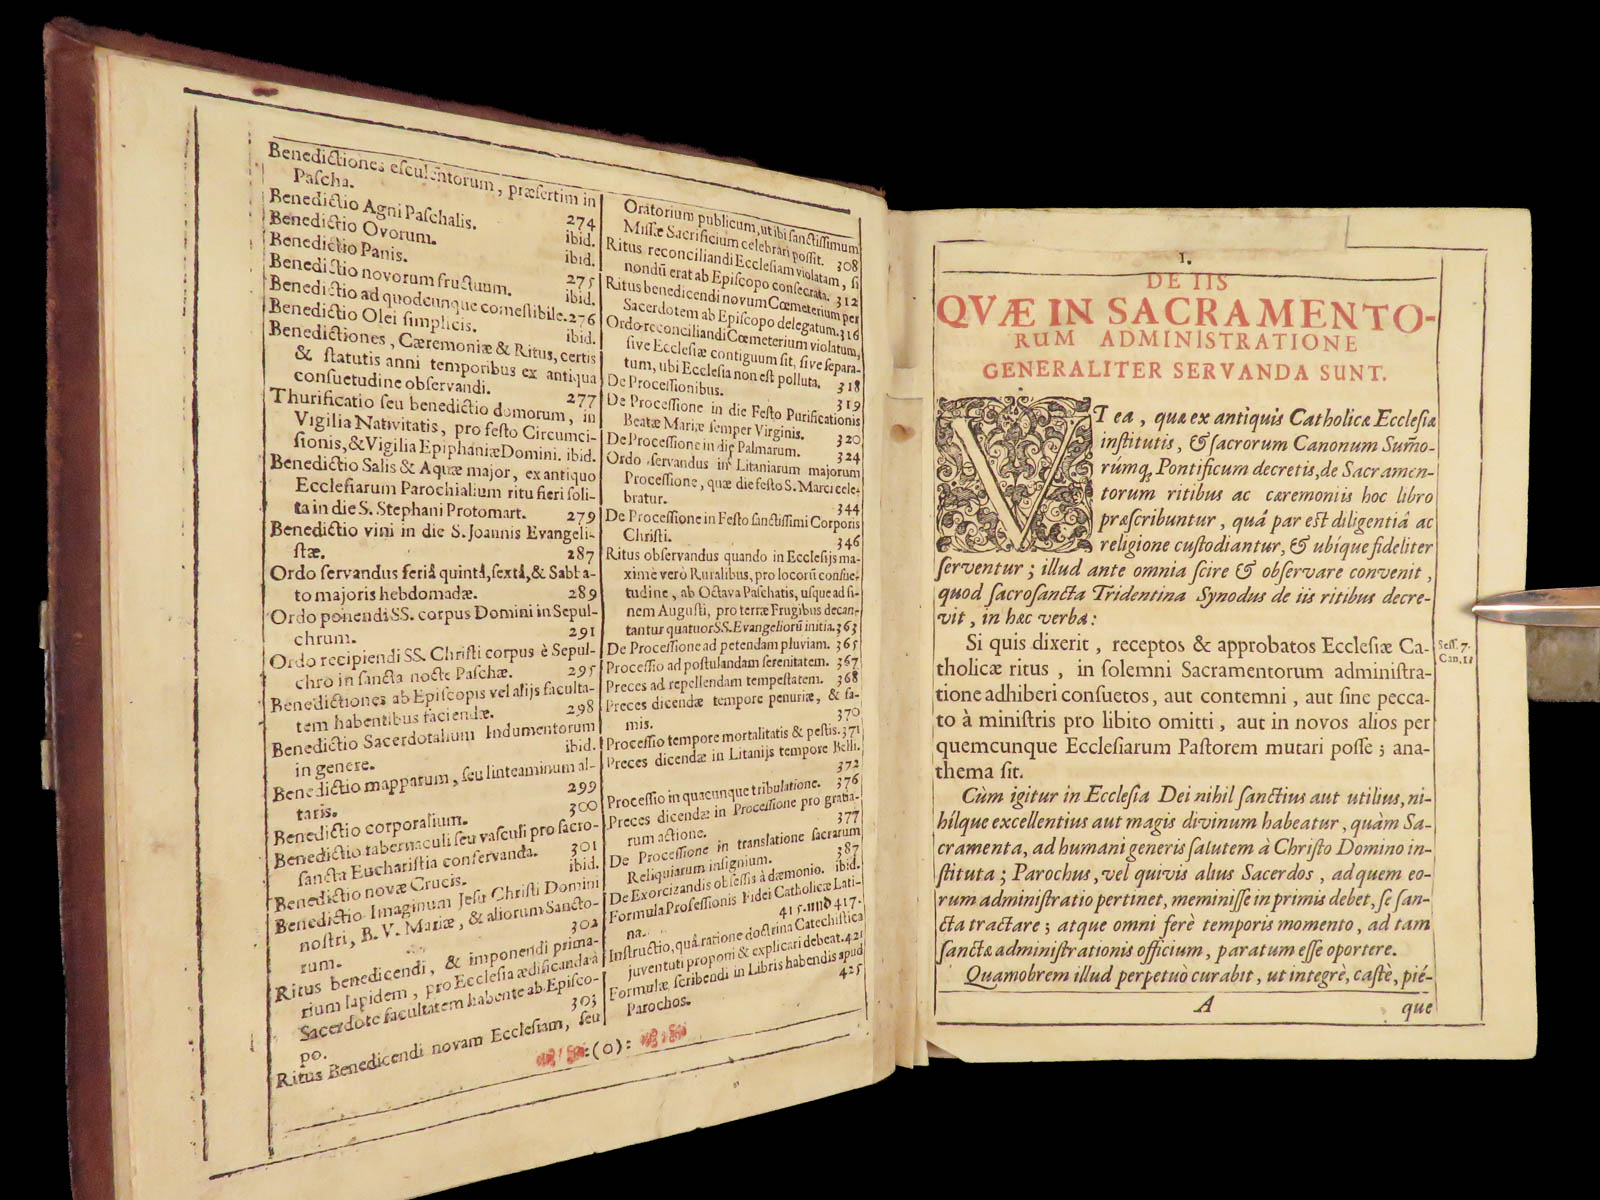 Benedictiones esculentorum, præsertim in
Pascha. 274
Benedictio Agni Paschalis. ibid.
Benedictio Ovorum. ibid.
Benedictio Panis. 275
Benedictio novorum fructuum. ibid.
Benedictio ad quodcunque comestibile. 276
Benedictio Olei simplicis. ibid.
Benedictiones, Cæremoniæ & Ritus, certis
& statutis anni temporibus ex antiqua
consuetudine observandi. 277
Thurificatio seu benedictio domorum, in
Vigilia Nativitatis, pro festo Circumci-
sionis, & Vigilia Epiphaniæ Domini. ibid.
Benedictio Salis & Aquæ major, ex antiquo
Ecclesiarum Parochialium ritu fieri soli-
ta in die S. Stephani Protomart. 279
Benedictio vini in die S. Joannis Evangeli-
stæ. 287
Ordo servandus feriâ quintâ, sextâ, & Sabba-
to majoris hebdomadæ. 289
Ordo ponendi SS. corpus Domini in Sepul-
chrum. 291
Ordo recipiendi SS. Christi corpus è Sepul-
chro in sancta nocte Paschæ. 295
Benedictiones ab Episcopis vel alijs faculta-
tem habentibus faciendæ. 298
Benedictio Sacerdotalium Indumentorum
in genere. ibid.
Benedictio mapparum, seu linteaminum al-
taris. 299
Benedictio corporalium. 300
Benedictio tabernaculi seu vasculi pro sacro-
sancta Eucharistia conservanda. 301
Benedictio novæ Crucis. ibid.
Benedictio Imaginum Jesu Christi Domini
nostri, B. V. Mariæ, & aliorum Sancto-
rum. 302
Ritus benedicendi, & imponendi prima-
rium lapidem, pro Ecclesia ædificanda à
Sacerdote facultatem habente ab Episco-
po. 303
Ritus Benedicendi novam Ecclesiam, seu
Oratorium publicum, ut ibi sanctissimum
Missæ Sacrificium celebrari possit. 308
Ritus reconciliandi Ecclesiam violatam, si
nondū erat ab Episcopo consecrata. 312
Ritus benedicendi novum Cœmeterium per
Sacerdotem ab Episcopo delegatum. 316
Ordo reconciliandi Cœmeterium violatum,
sive Ecclesiæ contiguum sit, sive separa-
tum, ubi Ecclesia non est polluta. 318
De Processionibus. 319
De Processione in die Festo Purificationis
Beatæ Mariæ semper Virginis. 320
De Processione in die Palmarum. 324
Ordo servandus in Litaniarum majorum
Processione, quæ die festo S. Marci cele-
bratur. 344
De Processione in Festo sanctissimi Corporis
Christi. 346
Ritus observandus quando in Ecclesijs ma-
ximè verò Ruralibus, pro locorū consue-
tudine, ab Octava Paschatis, usque ad fi-
nem Augusti, pro terræ Frugibus decan-
tantur quatuor SS. Evangeliorū initia. 363
De Processione ad petendam pluviam. 365
Processio ad postulandam serenitatem. 367
Preces ad repellendam tempestatem. 368
Preces dicendæ tempore penuriæ, & fa-
mis. 370
Processio tempore mortalitatis & pestis. 371
Preces dicendæ in Litanijs tempore Belli.
372
Processio in quacunque tribulatione. 376
Preces dicendæ in Processione pro gratia-
rum actione. 377
De Processione in translatione sacrarum
Reliquiarum insignium. 387
De Exorcizandis obsessis à dæmonio. ibid.
Formula Professionis Fidei Catholicæ Lati-
na. 415. und 417.
Instructio, quâ ratione doctrina Catechistica
juventuti proponi & explicari debeat. 421
Formulæ scribendi in Libris habendis apud
Parochos. 425
:(0):
1.
DE IIS
QVÆ IN SACRAMENTO-
RUM ADMINISTRATIONE
GENERALITER SERVANDA SUNT.
VT ea, quæ ex antiquis Catholicæ Ecclesiæ
institutis, & sacrorum Canonum Sum̄o-
rúmq; Pontificum decretis, de Sacramen-
torum ritibus ac cæremoniis hoc libro
præscribuntur, quâ par est diligentiâ ac
religione custodiantur, & ubíque fideliter
serventur; illud ante omnia scire & observare convenit,
quod sacrosancta Tridentina Synodus de iis ritibus decre-
vit, in hæc verba:
Si quis dixerit, receptos & approbatos Ecclesiæ Ca-
tholicæ ritus, in solemni Sacramentorum administra-
tione adhiberi consuetos, aut contemni, aut sine pecca-
to à ministris pro libito omitti, aut in novos alios per
quemcunque Ecclesiarum Pastorem mutari posse; ana-
thema sit.
Sess. 7.
Can. 13
Cùm igitur in Ecclesia Dei nihil sanctius aut utilius, ni-
hílque excellentius aut magis divinum habeatur, quàm Sa-
cramenta, ad humani generis salutem à Christo Domino in-
stituta; Parochus, vel quivis alius Sacerdos, ad quem eo-
rum administratio pertinet, meminisse in primis debet, se san-
cta tractare; atque omni ferè temporis momento, ad tam
sanctæ administrationis officium, paratum esse oportere.
Quamobrem illud perpetuò curabit, ut integrè, castè, pié-
A que